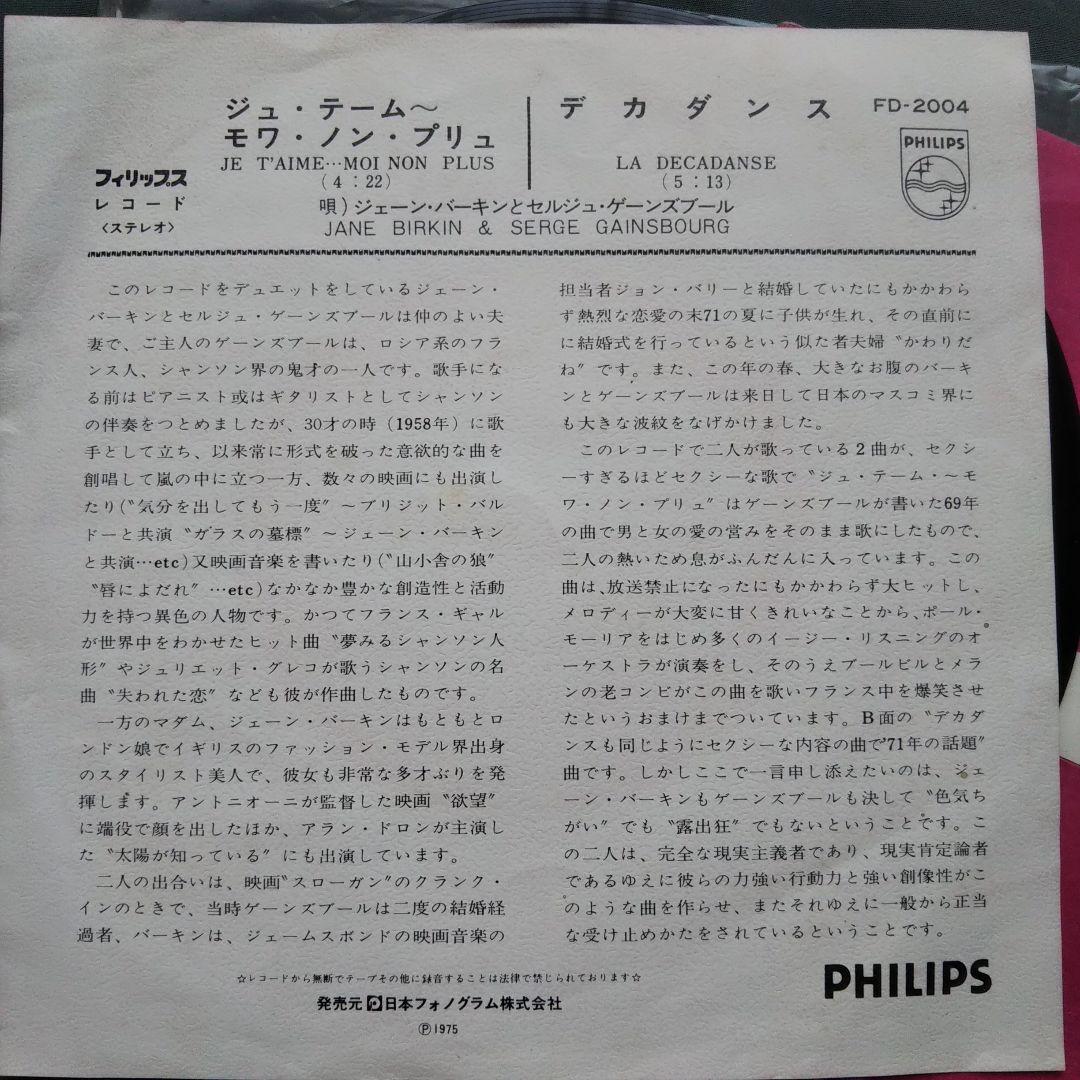 ジュ・テーム〜
モワ・ノン・プリュ
JE T'AIME…MOI NON PLUS
(4：22)
デカダンス
LA DECADANSE
(5：13)
FD-2004
PHILIPS
フィリップス
レコード
〈ステレオ〉
唄）ジェーン・バーキンとセルジュ・ゲーンズブール
JANE BIRKIN & SERGE GAINSBOURG
このレコードをデュエットをしているジェーン・
バーキンとセルジュ・ゲーンズブールは仲のよい夫
妻で、ご主人のゲーンズブールは、ロシア系のフラ
ンス人、シャンソン界の鬼才の一人です。歌手にな
る前はピアニスト或はギタリストとしてシャンソン
の伴奏をつとめましたが、30才の時（1958年）に歌
手として立ち、以来常に形式を破った意欲的な曲を
創唱して嵐の中に立つ一方、数々の映画にも出演し
たり(〝気分を出してもう一度〟〜ブリジット・バル
ドーと共演〝ガラスの墓標〟〜ジェーン・バーキン
と共演…etc)又映画音楽を書いたり(〝山小舎の狼〟
〝唇によだれ〟…etc)なかなか豊かな創造性と活動
力を持つ異色の人物です。かつてフランス・ギャル
が世界中をわかせたヒット曲〝夢みるシャンソン人
形〟やジュリエット・グレコが歌うシャンソンの名
曲〝失われた恋〟なども彼が作曲したものです。
一方のマダム、ジェーン・バーキンはもともとロ
ンドン娘でイギリスのファッション・モデル界出身
のスタイリスト美人で、彼女も非常な多才ぶりを発
揮します。アントニオーニが監督した映画〝欲望〟
に端役で顔を出したほか、アラン・ドロンが主演し
た〝太陽が知っている〟にも出演しています。
二人の出合いは、映画〝スローガン〟のクランク・
インのときで、当時ゲーンズブールは二度の結婚経
過者、バーキンは、ジェームスボンドの映画音楽の
担当者ジョン・バリーと結婚していたにもかかわら
ず熱烈な恋愛の末71の夏に子供が生れ、その直前に
に結婚式を行っているという似た者夫婦〝かわりだ
ね〟です。また、この年の春、大きなお腹のバーキ
ンとゲーンズブールは来日して日本のマスコミ界に
も大きな波紋をなげかけました。
このレコードで二人が歌っている2曲が、セクシ
ーすぎるほどセクシーな歌で〝ジュ・テーム・〜モ
ワ・ノン・プリュ〟はゲーンズブールが書いた69年
の曲で男と女の愛の営みをそのまま歌にしたもので、
二人の熱いため息がふんだんに入っています。この
曲は、放送禁止になったにもかかわらず大ヒットし、
メロディーが大変に甘くきれいなことから、ポール・
モーリアをはじめ多くのイージー・リスニングのオ
ーケストラが演奏をし、そのうえブールビルとメラ
ンの老コンビがこの曲を歌いフランス中を爆笑させ
たというおまけまでついています。B面の〝デカダ
ンスも同じようにセクシーな内容の曲で'71年の話題〟
曲です。しかしここで一言申し添えたいのは、ジェ
ーン・バーキンもゲーンズブールも決して〝色気ち
がい〟でも〝露出狂〟でもないということです。こ
の二人は、完全な現実主義者であり、現実肯定論者
であるゆえに彼らの力強い行動力と強い創像性がこ
のような曲を作らせ、またそれゆえに一般から正当
な受け止めかたをされているということです。
☆レコードから無断でテープその他に録音することは法律で禁じられております☆
発売元 日本フォノグラム株式会社
Ⓟ1975
PHILIPS